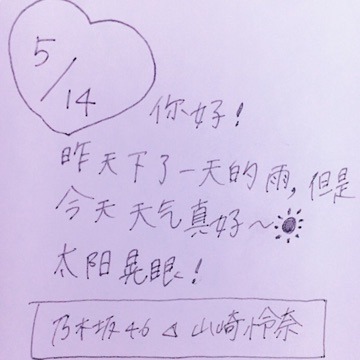 5/14
你好!
昨天下了一天的雨,但是
今天天气真好~
太阳晃眼!
乃木坂46 山崎怜奈